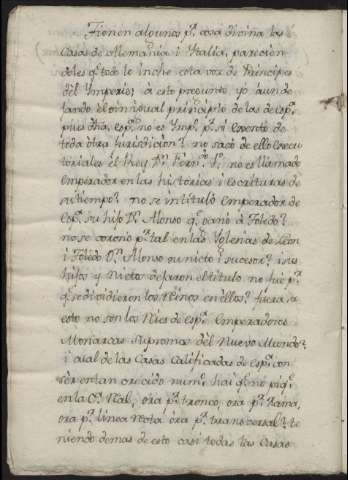 Tienen algunos pr. cosa divina las
Casas de Alemania i Italia, parecien
doles q̃ todo lo inche esta voz de Principes
del Imperio; a esto pregunto yo aunde
lando el original principio de las de espª.
pues dha, espª. no es Imp.l pr. si esenta de
toda otra jurisdicion? no saco de ello execu
toriales el Rey Dn. Fern.do 1º. no es llamado
emperador en las historias i escrituras de
su tiempo? no se intitulo emperador de
espª. su hijo Dn. Alonso q̃ ganó a Toledo?
no se coronó pr. tal en las Yglesias de Leon
i Toledo Dn. Alonso su nieto i sucesor? i sus
hijos y Nietos dejaron el titulo, no fue pr.
q̃ se dividieron los Reinos en ellos? fuera, de
esto no son los Ries de espª. emperadores
Monarcas Supremos del Nuevo Mundo?
i a tal de las Casas Calificadas de espª. con
ser en tan crecido num.º hai q̃ no piq̃
en la Cª. Ral, ora pr. tronco, ora pr. Rama,
ora pr. linea recta ora pr. transversal? te
niendo demas de esto casi todas las Casas